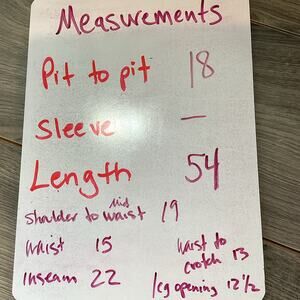 Measurements
Pit to pit 18
Sleeve —
Length 54
Shoulder to mid waist 19
waist 15
waist to crotch 13
inseam 22
leg opening 12 1/2